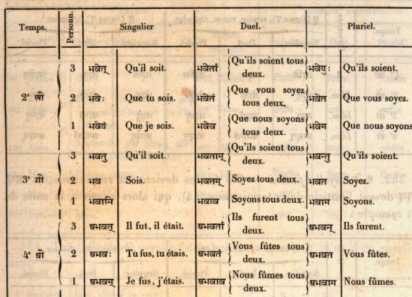 Temps. Personn. Singulier Duel. Pluriel.
3 भवेत् Qu'il soit. भवेतां Qu'ils soient tous deux. भवेयुः Qu'ils soient.
2ᵉ ली 2 भवेः Que tu sois. भवेतं Que vous soyez tous deux. भवेत Que vous soyez.
1 भवेयं Que je sois. भवेव Que nous soyons tous deux. भवेम Que nous soyons
3 भवतु Qu'il soit. भवताम् Qu'ils soient tous deux. भवन्तु Qu'ils soient.
3ᵉ गी 2 भव Sois. भवतम् Soyez tous deux. भवत Soyez.
1 भवानि Soyons tous deux. भवाव भवाम Soyons.
3 अभवत् Il fut, il était. अभवतां Ils furent tous deux. अभवन् Ils furent.
4ᵉ घी 2 अभवः Tu fus, tu étais. अभवतं Vous fûtes tous deux. अभवत Vous fûtes.
1 अभवम् Je fus, j'étais. अभवाव Nous fûmes tous deux. अभवाम Nous fûmes